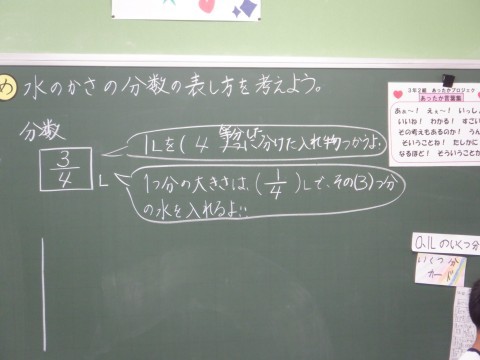 め 水のかさの分数の表し方を考えよう。
分数
3/4 L
1Lを( 4 等分した
つに分けた入れ物つかうよ。
1つ分の大きさは、(1/4)Lで、その(3)つ分
の水を入れるよ!!
3年2組 あったかプロジェク
あったか言葉集
あぁ〜! えぇ〜! いっし
いいね! わかる! すごい
その考えもあるのか! うん
そういうことね! たしかに
なるほど! そういうことか
0.1Lのいくつ分
いくつ分
カード